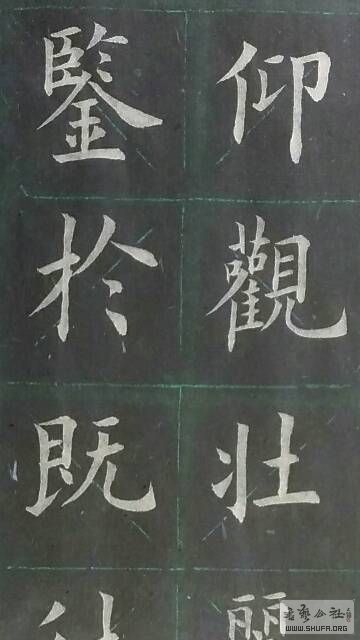 仰觀壯麗
鍳於既
公社
WWW.SHUFA.ORG